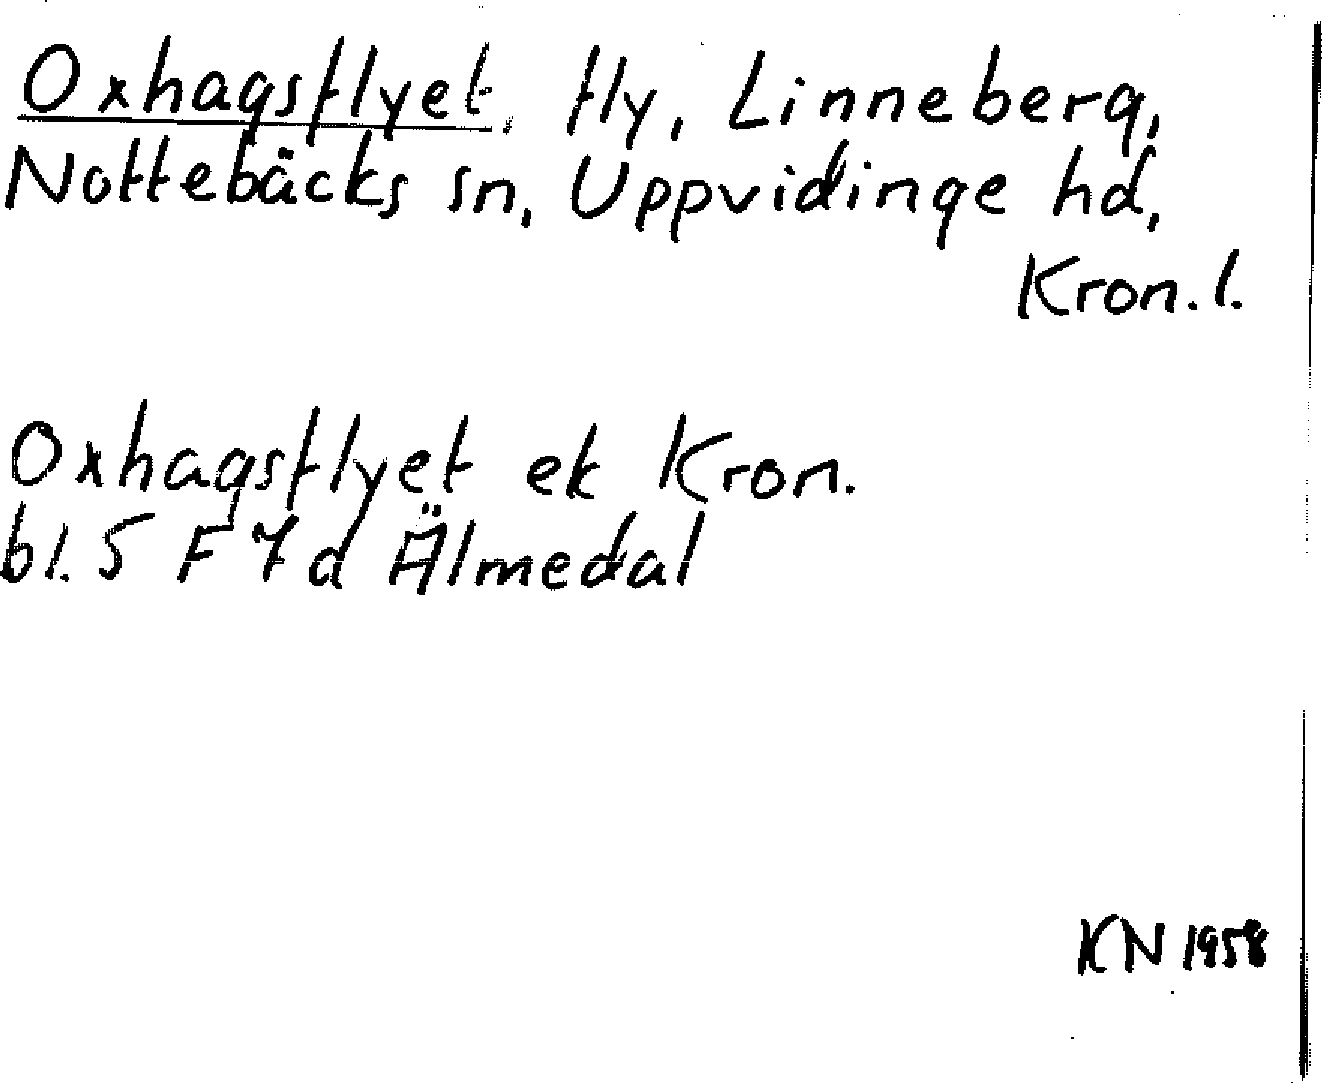 Oxhagsflyet, fly, Linneberg,
Nottebäcks sn, Uppvidinge hd,
Kron. l.
Oxhagsflyet ek Kron.
bl. 5 F 7d Älmedal
KN 1958